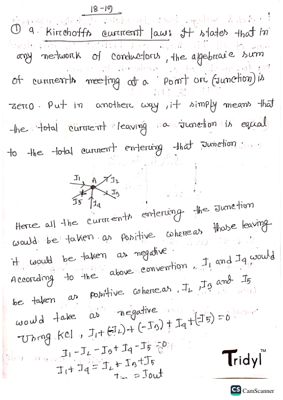 18-19
① a. Kirchoffs current law: It states that in
any network of conductors, the algebraic sum
of currents meeting at a Point ori (Junction) is
zero. Put in another way, it simply means that
the total current leaving a Junction is equal
to the total current entering that Junction.
I₁ A I₂
I₅ I₄ I₃
Here all the currents entering the Junction
would be taken as Positive whereas those leaving
it would be taken as negative.
According to the above convention, I₁ and I₄ would
be taken as positive whereas, I₂, I₃ and I₅
would take as negative
Using KCl, I₁+(-I₂)+(-I₃)+I₄+(-I₅)=0
I₁-I₂-I₃+I₄-I₅=0
I₁+I₄=I₂+I₃+I₅
=Iout
Tridyl™
CS CamScanner